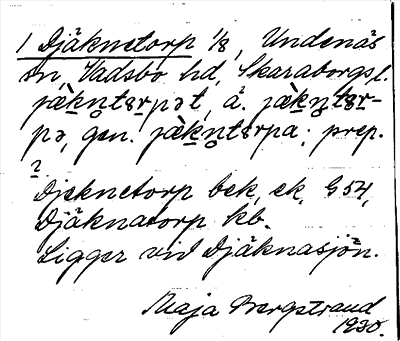 1 Djäknetorp 1/8, Undenäs
sn, Vadsbo hd, Skaraborgs l.
jæ̀kn̥tɜrpət, å. jæ̀kn̥tɜr-
pə, gen. jæ̀kn̥tɜrpa; prep.
?
Djeknetorp bek, ek, G 54,
Djäknatorp kb.
Ligger vid Djäknasjön.
Maja Bergstrand
1930.